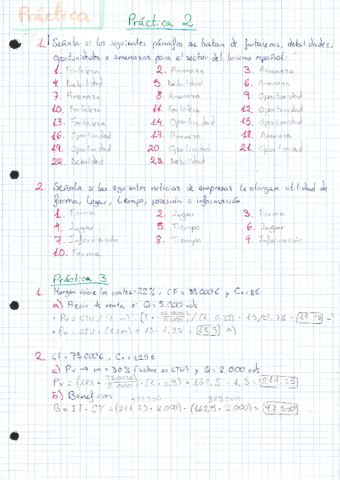 Práctica
Práctica 2
1. Señala si los siguientes párrafos se tratan de fortalezas, debilidades,
oportunidades o amenazas para el sector del turismo español:
1. Fortaleza 2. Amenaza 3. Amenaza
4. Debilidad 5. Debilidad 6. Amenaza
7. Amenaza 8. Amenaza 9. Oportunidad
10. Fortaleza 11. Fortaleza 12. Oportunidad
13. Fortaleza 14. Oportunidad 15. Oportunidad
16. Oportunidad 17. Amenaza 18. Amenaza
19. Oportunidad 20. Oportunidad 21. Oportunidad
22. Debilidad 23. Debilidad
2. Señala si las siguientes noticias de empresas le otorgan utilidad de
forma, lugar, tiempo, posesión o información
1. Forma 2. Lugar 3. Forma
4. Lugar 5. Tiempo 6. Lugar
7. Información 8. Tiempo 9. Información
10. Forma
Práctica 3
1. Margen sobre los costes = 22%, CF =
a) Precio de venta si Q = 5.000 uds
2. CF = 75.000€,
a) Pv → m = 30% (sobre su CTU) y Q = 2.000 uds
b) Beneficios
B = IT - CT = (211,25 · 2.000) - (162,5 · 2.000) = 97.500